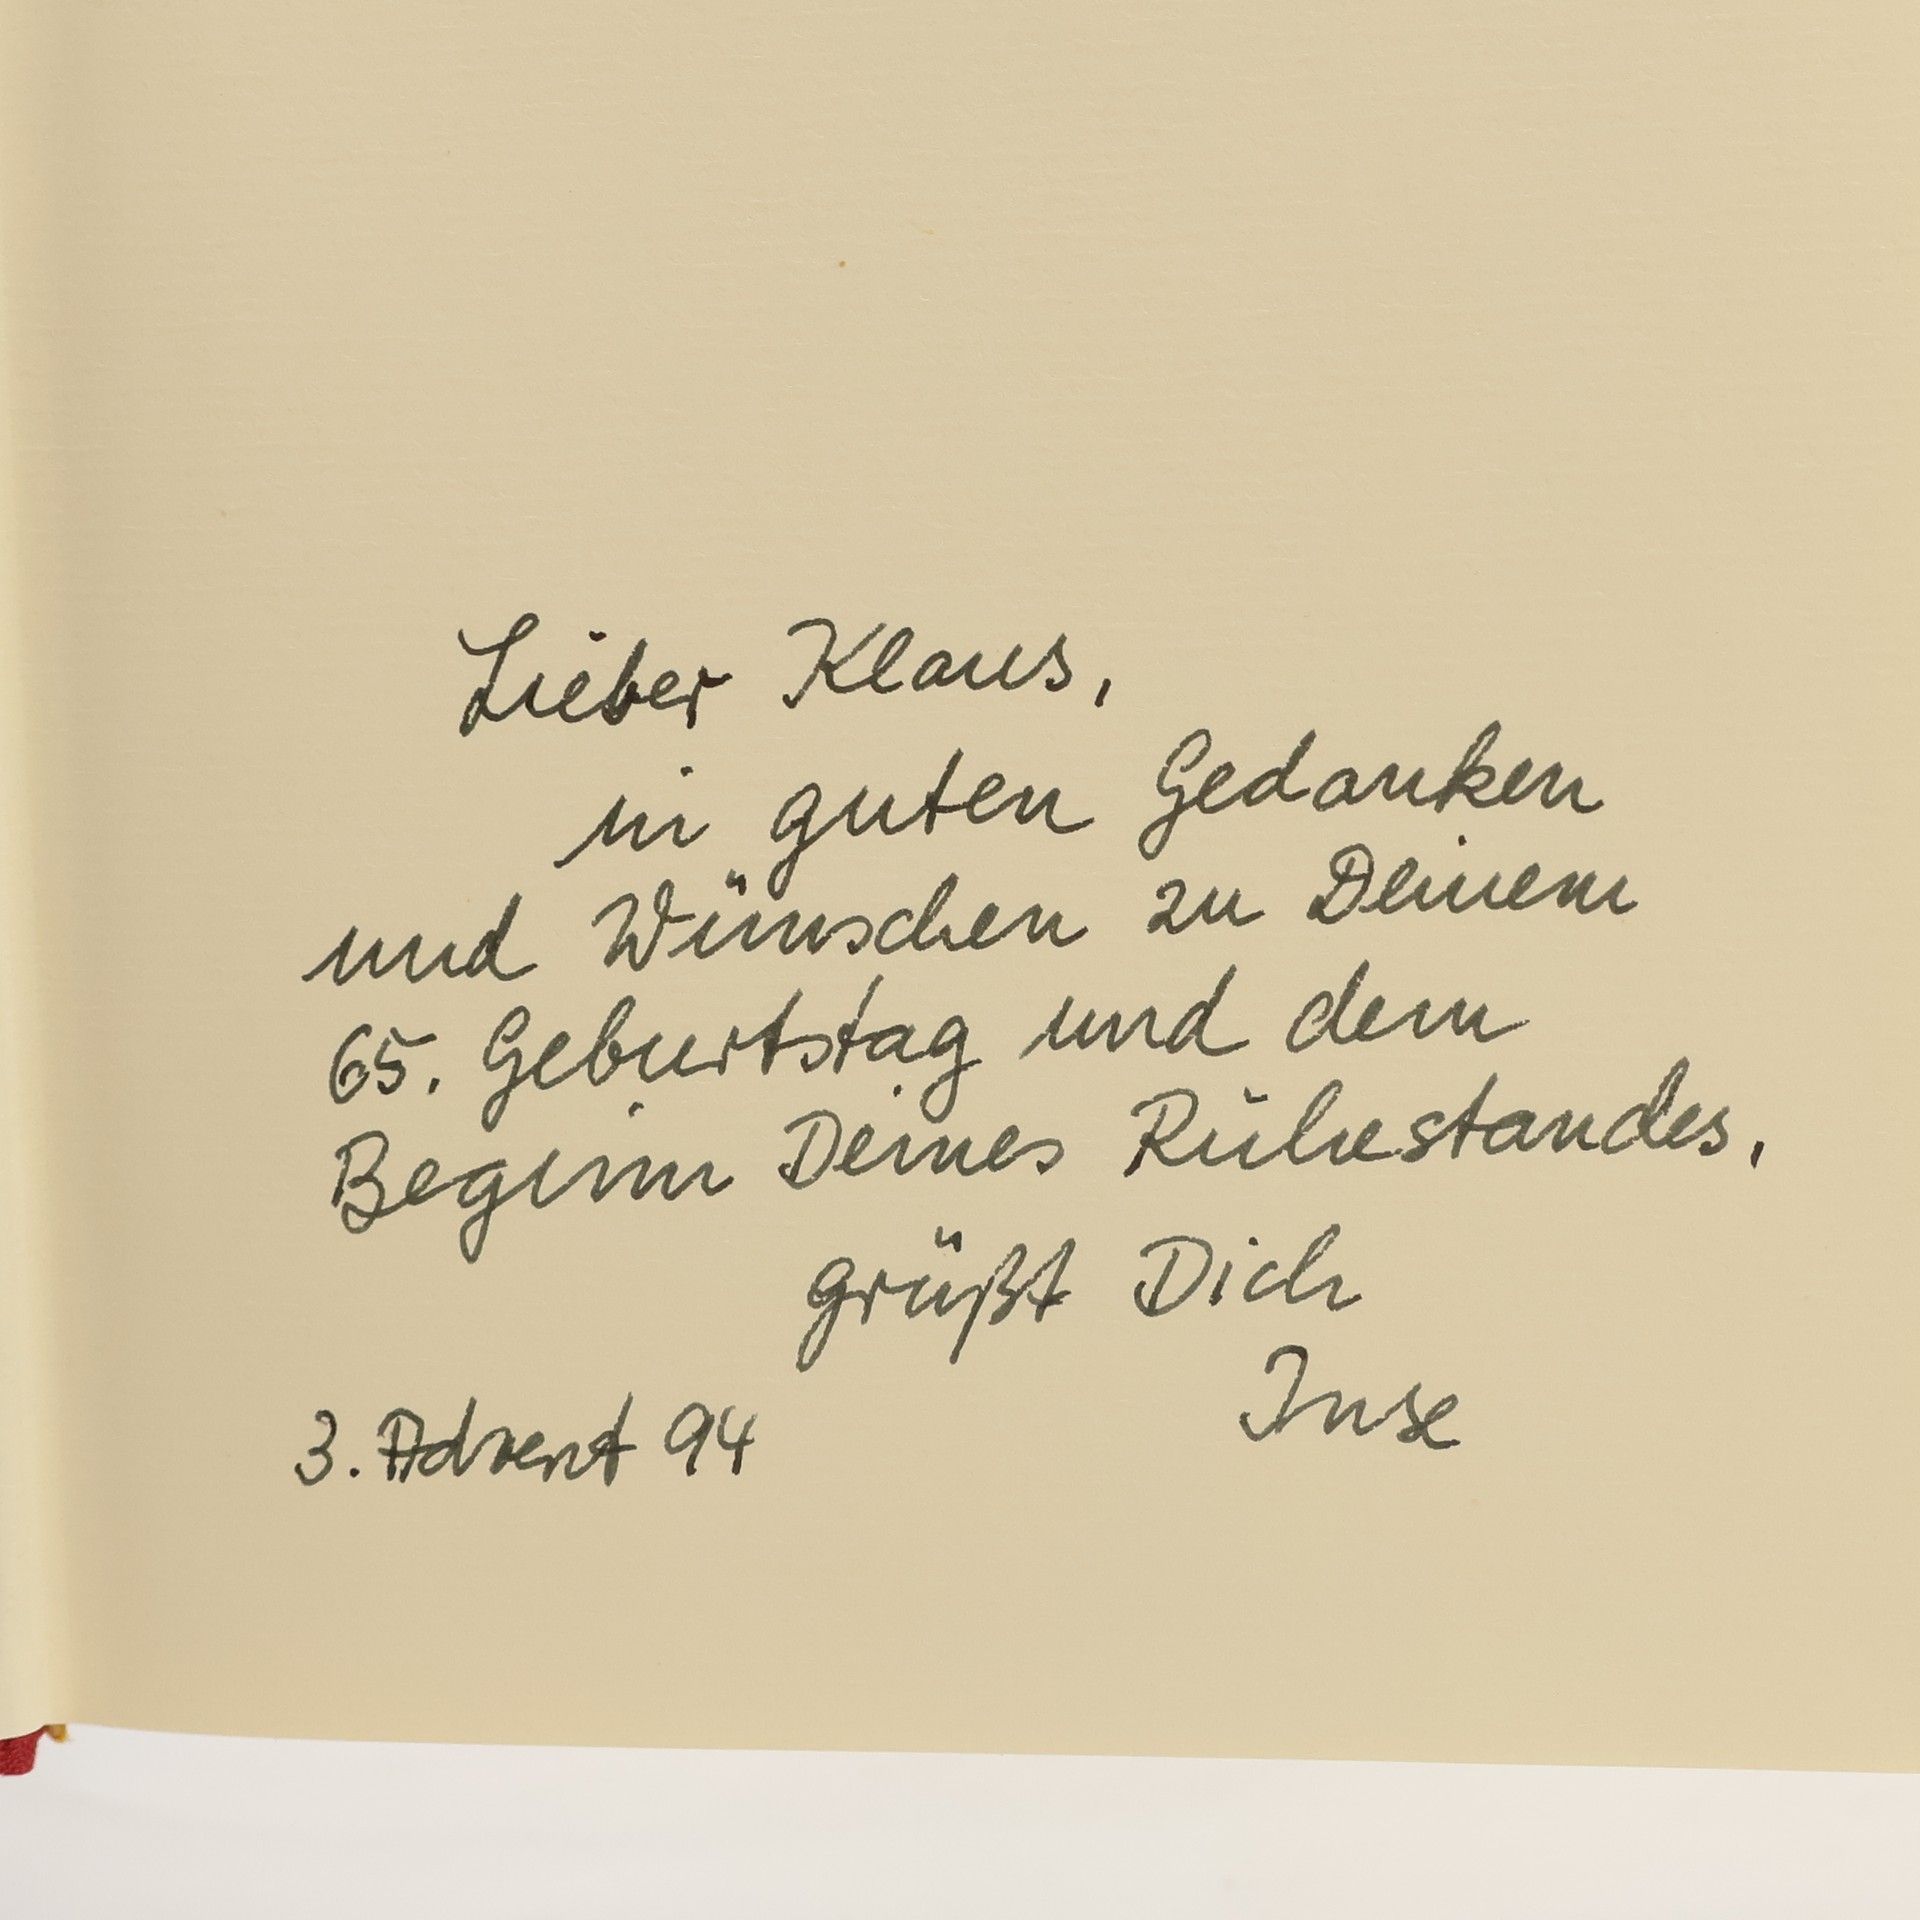 Lieber Klaus,
in guten Gedanken
und Wünschen zu Deinem
65. Geburtstag und dem
Beginn Deines Ruhestandes,
grüßt Dich
Inse
3. Advent 94